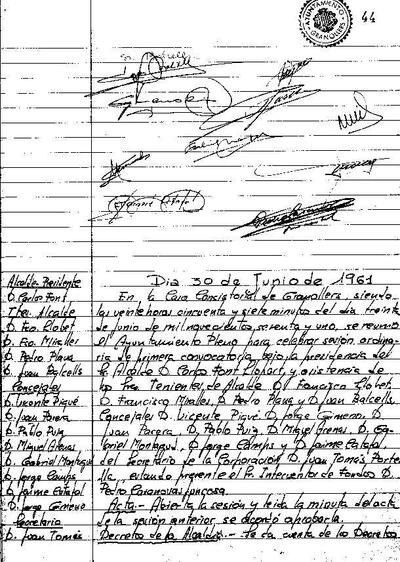 AYUNTAMIENTO
GRANOLLERS
44
Alcalde Presidente
D. Carlos Font
Ttes. Alcalde
D. Fco. Llobet
D. Fco. Miralles
D. Pedro Plana
D. Juan Balcells
Concejales
D. Vicente Piqué
D. Juan Parera
D. Pablo Puig
D. Miguel Arenas
D. Gabriel Montagud
D. Jorge Camps
D. Jaime Catafal
D. Jorge Gimeno
Secretario
D. Juan Tomás
Dia 30 de Junio de 1961
En la Casa Consistorial de Granollers, siendo
las veinte horas cincuenta y siete minutos del día treinta
de junio de mil novecientos sesenta y uno, se reunió
el Ayuntamiento Pleno para celebrar sesión ordina-
ria de primera convocatoria, bajo la presidencia del
Sr. Alcalde D. Carlos Font Llopart y asistencia de
los Sres. Tenientes de Alcalde D. Francisco Llobet,
D. Francisco Miralles, D. Pedro Plana y D. Juan Balcells.
Concejales D. Vicente Piqué, D. Jorge Gimeno, D.
Juan Parera, D. Pablo Puig, D. Miguel Arenas, D. Ga-
briel Montagud, D. Jorge Camps y D. Jaime Catafal
del Secretario de la Corporación D. Juan Tomás
estando presente el Sr. Interventor de Fondos D.
Pedro Casanovas
Acta.- Abierta la sesión y leida la minuta del acta
de la sesión anterior, se acordó aprobarla.
Decretos de la Alcaldía.- Se da cuenta de los Decretos